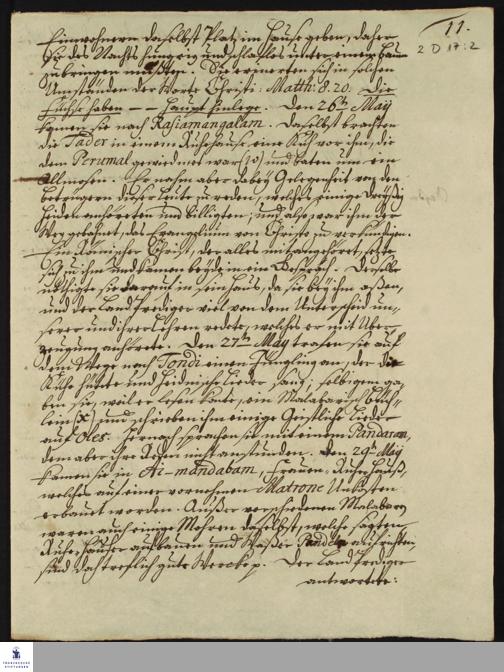 11.
2 D 17:2
Einwohnern daselbst Platz im Hause geben, daher
sie des Nachts hungrig und schlaflos unter einem Baum
zubringen mußten. Sie erinnerten sich in solchen
Umständen der Worte Christi: Matth: 8. 20. Die
Füchse haben -- Haupt hinlege. Den 26th May
kamen sie nach Rasiamangalam. Daselbst brachten
die Tader in einem Ruhehause eine Kuh vor ihn, die
dem Perumal gewiedmet war (10) und baten um ein
Allmosen. Er nahm aber dabey Gelegenheit von den
betrügern dieser Leute zu reden, welches einige dreyßig
Heiden anhöreten und billigten; und also war ihm der
Weg gebahnet, das Evangelium von Christo zu verkündigen.
Ein Römischer Christ, der alles mit angehöret, setzte
sich zu ihm und kamen beyde in ein Gespräch. Derselbe
nöthigte sie darauf in sein Haus, da sie bey ihm aßen,
und der Land Prediger viel von dem Unterscheid un-
serer und ihrer Lehren redete, welches er mit Über-
zeugung anhörete. Den 27th May trafen sie auf
dem Wege nach Tondi einen Jüngling an, der die
Kühe hütete und heidnische Lieder sang; selbigem ga-
ben sie, weil er lesen kunte, ein Malabarisch Büch-
lein (x) und schrieben ihm einige Geistliche Lieder
auf Oles. Hernach sprachen sie mit einem Pandaram,
dem aber ihre Reden nicht anstunden. Den 29th May
kamen sie in Ai-mandabam, Frauen-Ruhe Hauß,
welches auf einer vornehmen Matrone Unkosten
erbauet worden. Außer verschiedenen Malabaren
waren auch einige Mohren daselbst, welche sagten,
Ruhe-Häuser aufbauen und Waßer Pandel aufrichten,
sind da trefliche gute Wercke p. Der Land Prediger
antwortete:
FRANCKESCHE
STIFTUNGEN